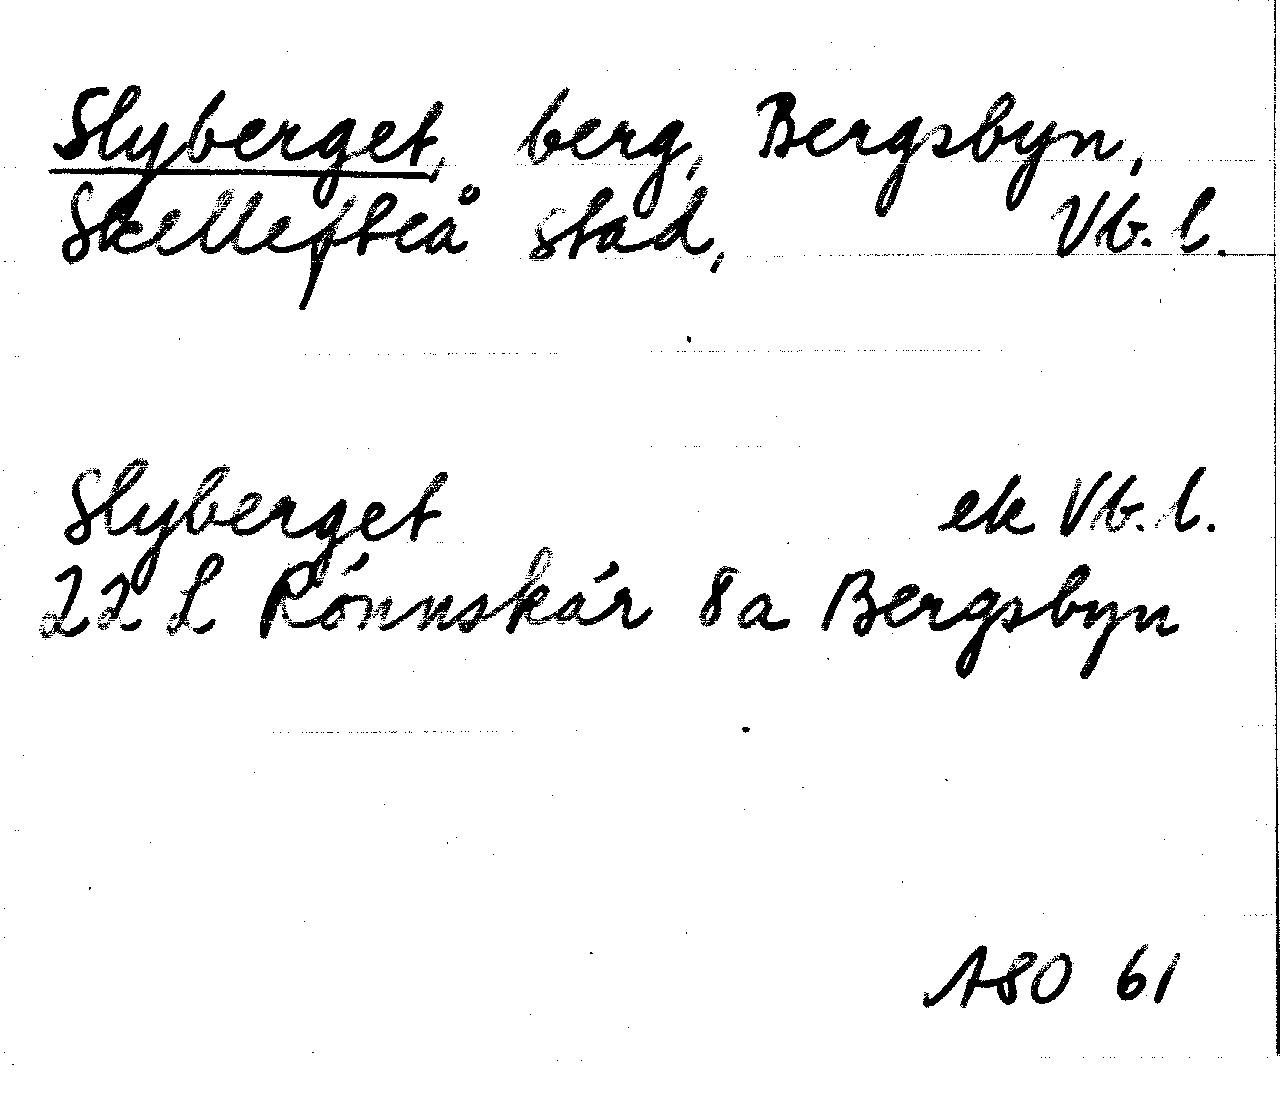 Slyberget, berg, Bergsbyn,
Skellefteå stad, Vb. l.
Slyberget ek Vb. l.
22 L Rönnskär 8a Bergsbyn
ASO 61